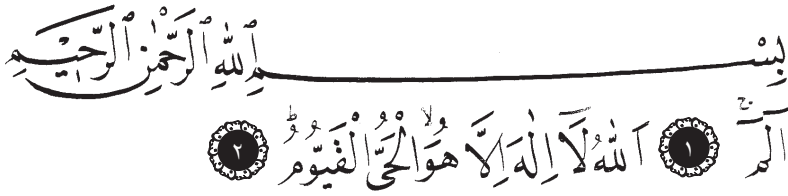 بِسْمِ اللّٰهِ الرَّحْمٰنِ الرَّحٖيمِ
الٓمٓ ۚ ﴿١﴾ اَللّٰهُ لَٓا اِلٰهَ اِلَّا هُوَۙ الْحَيُّ الْقَيُّومُۜ ﴿٢﴾